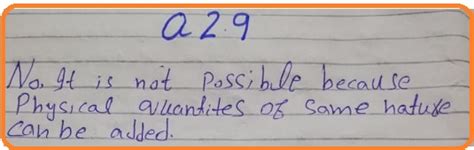 Q 2.9
No. It is not possible because
Physical quantites of same nature
can be added.